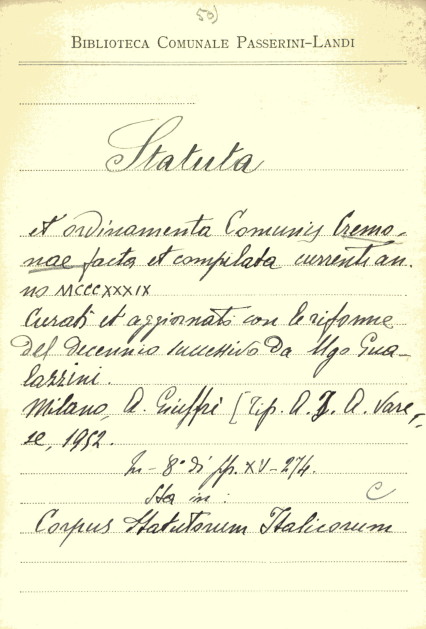 50)
BIBLIOTECA COMUNALE PASSERINI-LANDI
Statuta
et ordinamenta Comunis Cremo-
nae facta et compilata currenti an.
no MCCCXXXIX
Curati et aggiornati con le riforme
del decennio successivo da Ugo Gua-
lazzini.
Milano, A. Giuffrè [Tip. A. J. A. Vare-
se, 1952.
In-8° di pp. XV-274.
Sta in:
C
Corpus Statutorum Italicorum